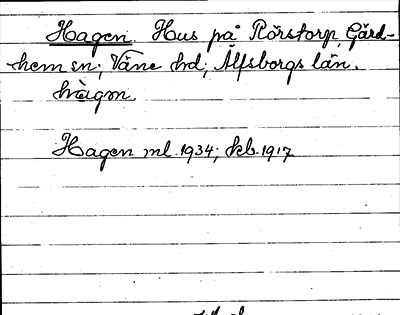 Hagen. Hus på Rörstorp, Gärd-
hem sn; Väne hd; Älfsborgs län.
hàgɷn.
Hagen ml. 1934; kb. 1917.